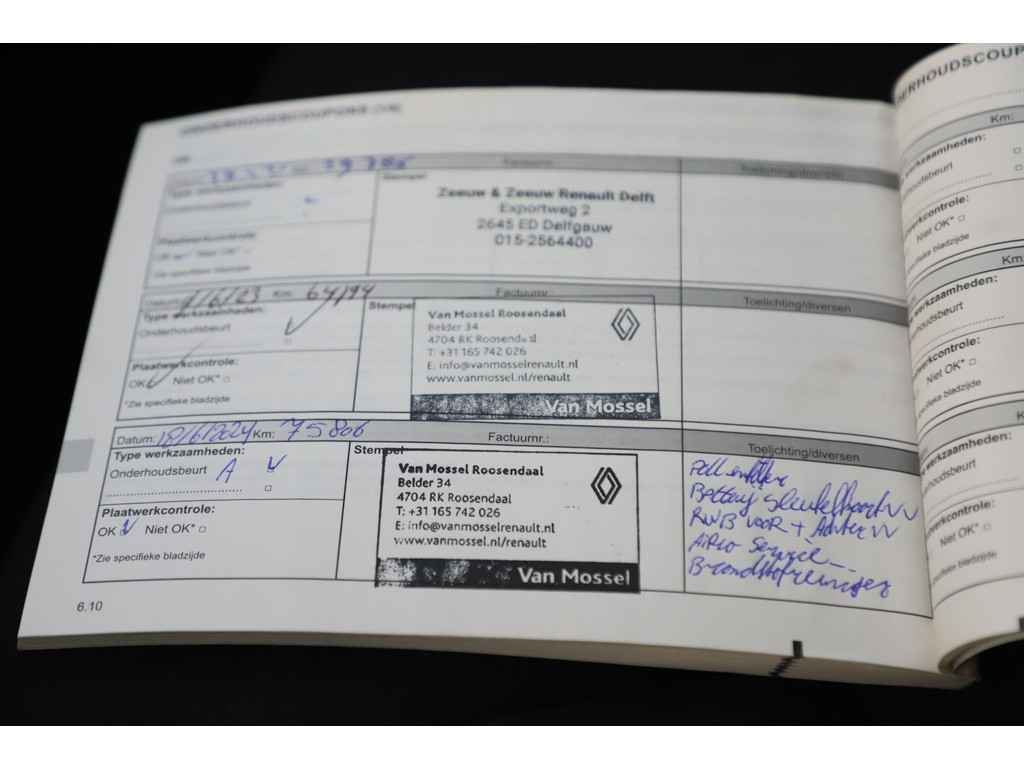 ONDERHOUDSCOUPONS (1/6)
Factuurnr.:
Toelichting/diversen
Type werkzaamheden:
Stempel
Onderhoudsbeurt
Plaatwerkcontrole:
Niet OK*
*Zie specifieke bladzijde
Zeeuw & Zeeuw Renault Delft
Exportweg 2
2645 ED Delfgauw
015-2564400
Datum: /6/23 Km: 64194
Factuurnr.:
Toelichting/diversen
Type werkzaamheden:
Stempel
Onderhoudsbeurt
Plaatwerkcontrole:
OK Niet OK*
*Zie specifieke bladzijde
Van Mossel Roosendaal
Belder 34
4704 RK Roosendaal
T: +31 165 742 026
E: info@vanmosselrenault.nl
www.vanmossel.nl/renault
Van Mossel
Datum: 18/6/2024 Km: 75806
Factuurnr.:
Toelichting/diversen
Type werkzaamheden:
Stempel
Onderhoudsbeurt A
Plaatwerkcontrole:
OK Niet OK*
*Zie specifieke bladzijde
Van Mossel Roosendaal
Belder 34
4704 RK Roosendaal
T: +31 165 742 026
E: info@vanmosselrenault.nl
www.vanmossel.nl/renault
Van Mossel
Battery
RWB VOOR + Achter
Airco Service
Brandstofreiniger
6.10
Km:
Niet OK*
Km:
Niet OK*
Niet OK*